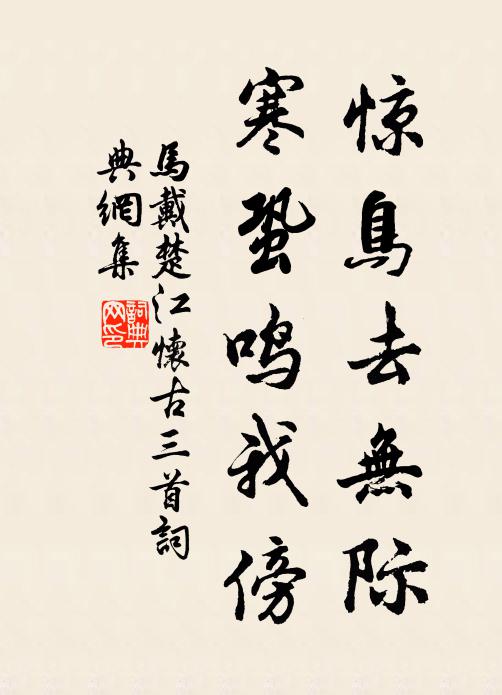 惊鳥去無际
寒蛩鳴我傍
馬戴楚江懷古三首詞
典網集
詞典
网印